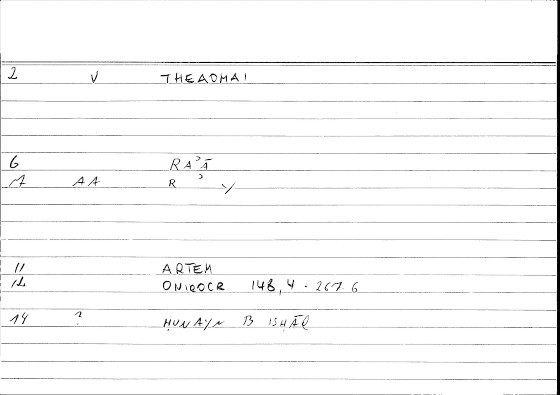 2 V THEAOMAI
6 RAʾĀ
7 AA R ʾ Y
11 ARTEM
12 ONIROCR 148,4 - 267.6
14 ? ḤUNAYN B ISḤĀQ